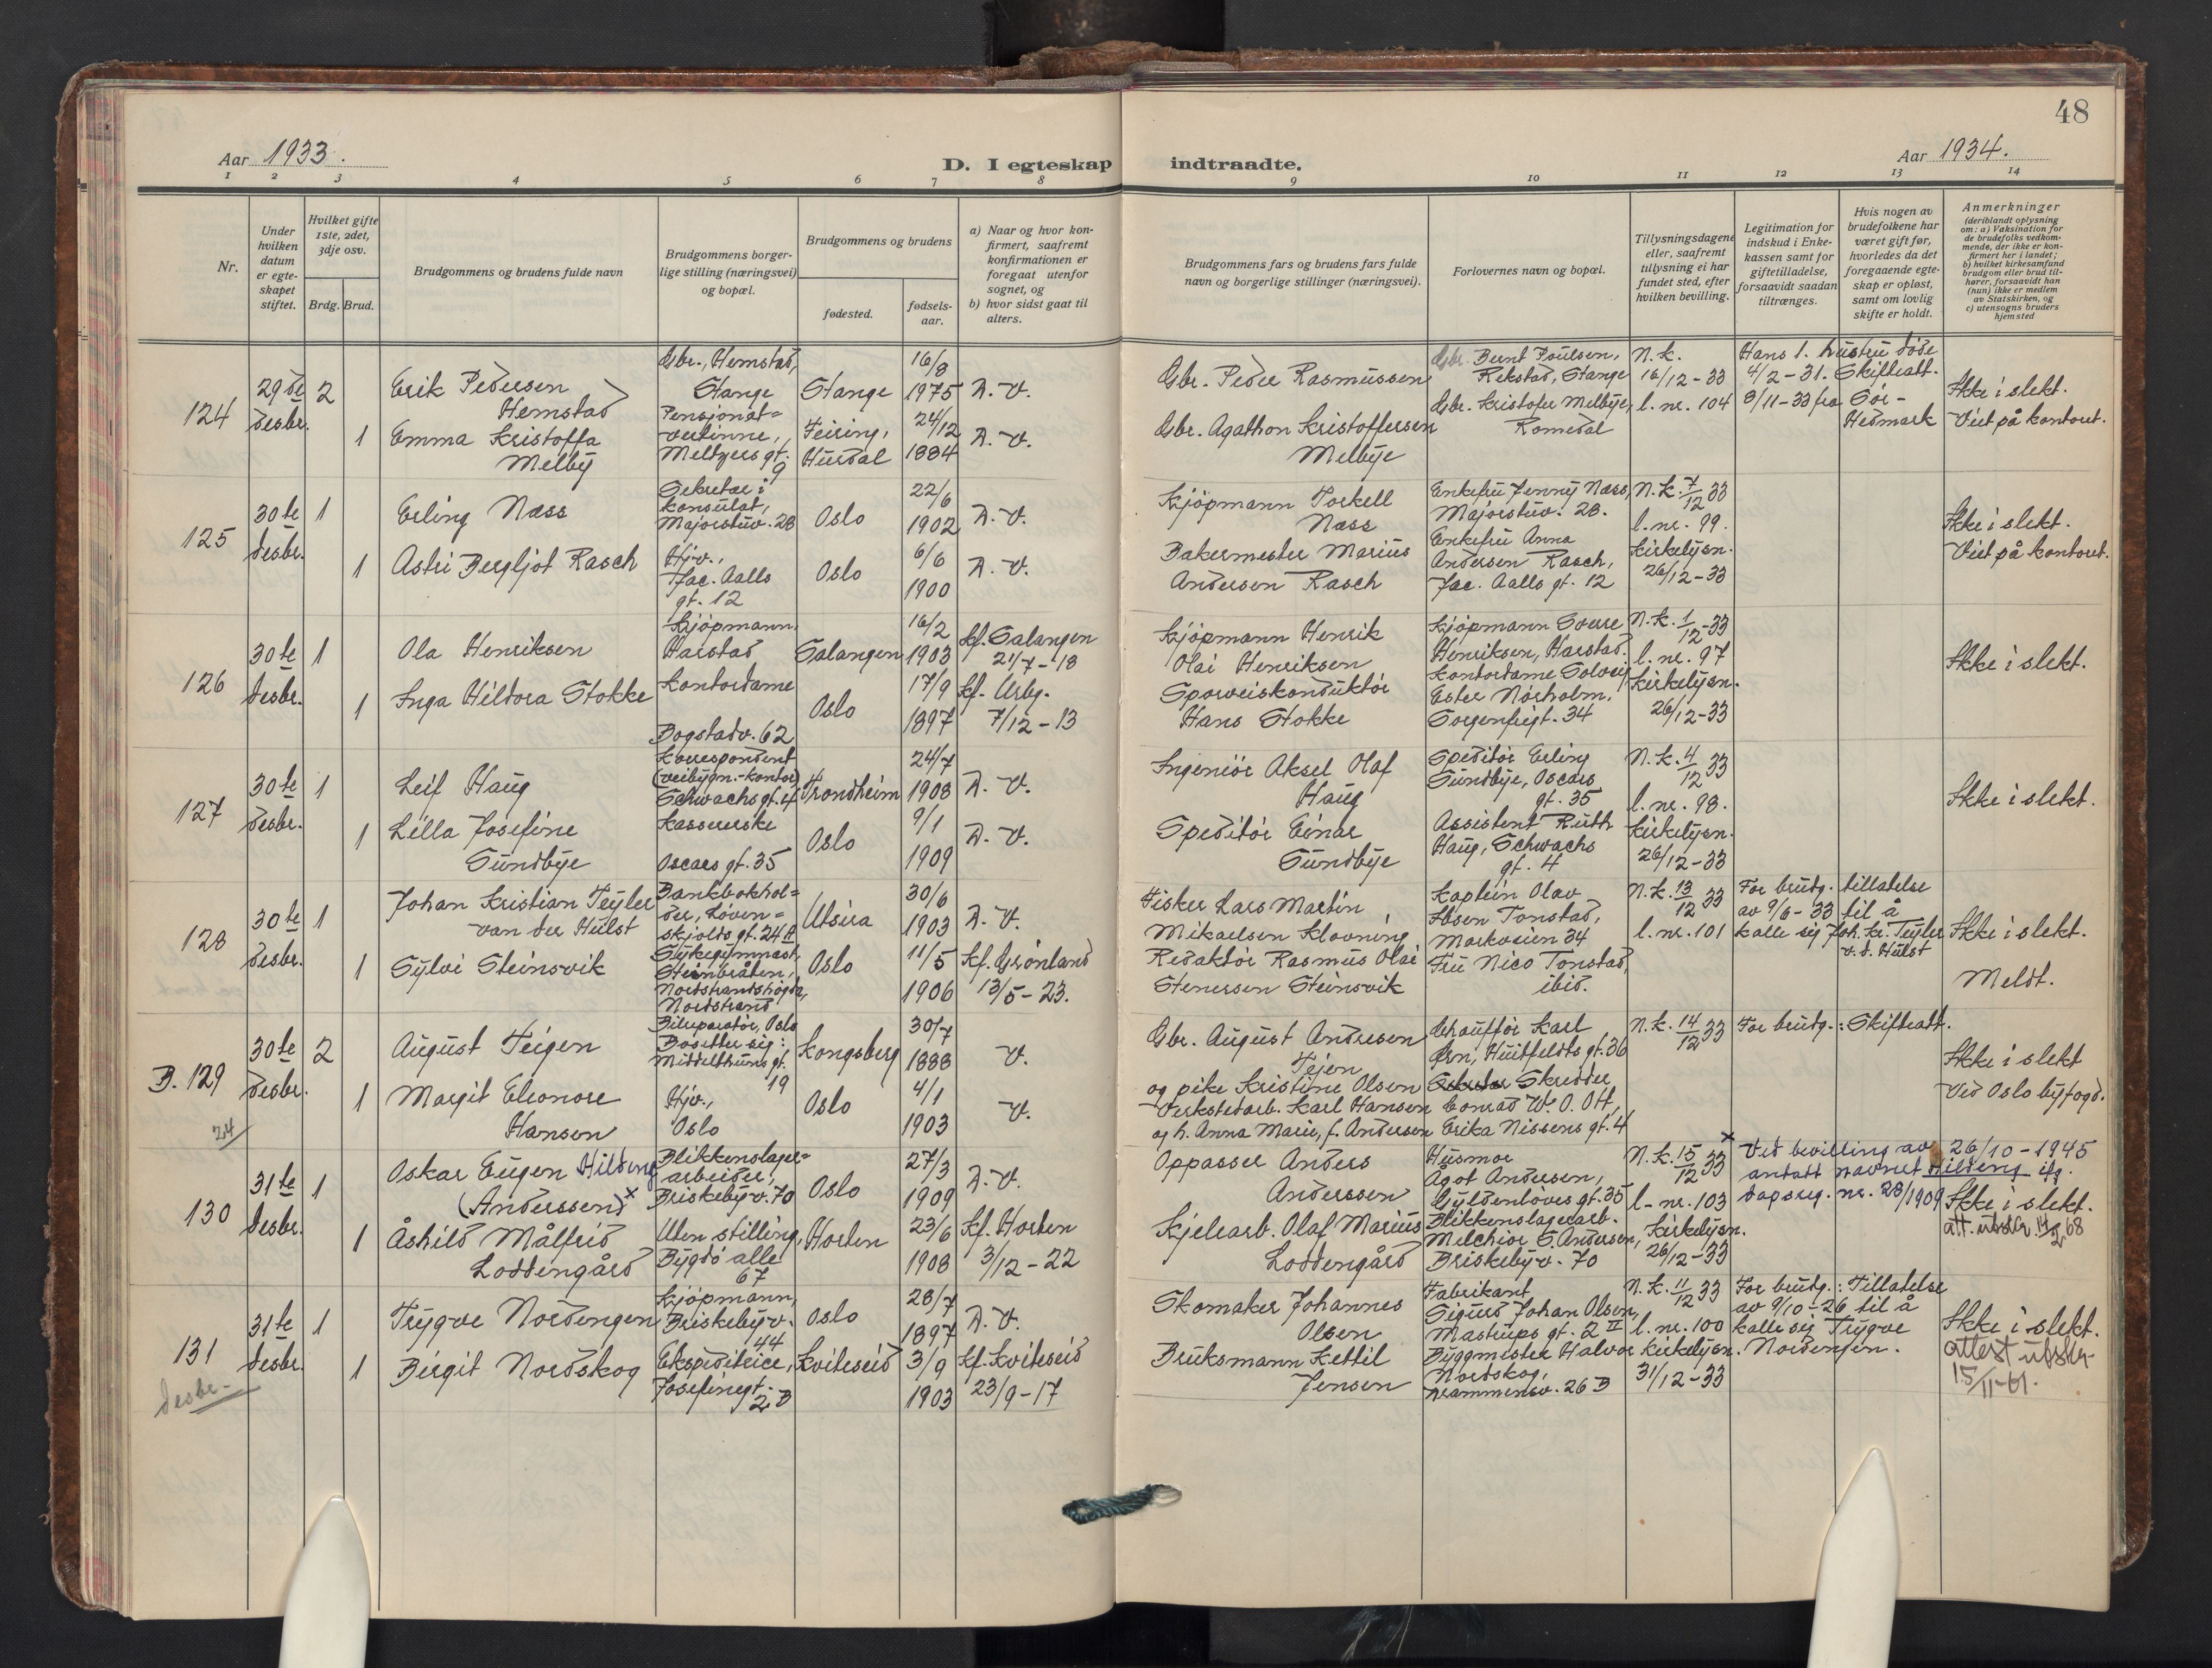 48
Aar 1933.
D. I egteskap indtraadte.
Aar 1934.
1 2 3 4 5 6 7 8 9 10 11 12 13 14
Nr.
Under hvilken datum er egteskapet stiftet.
Hvilket gifte 1ste, 2det, 3dje osv.
Brdg. Brud.
Brudgommens og brudens fulde navn
Brudgommens borgerlige stilling (næringsvei) og bopæl.
Brudgommens og brudens
fødested.
fødselsaar.
a) Naar og hvor konfirmert, saafremt konfirmationen er foregaat utenfor sognet, og
b) hvor sidst gaat til alters.
Brudgommens fars og brudens fars fulde navn og borgerlige stillinger (næringsvei).
Forlovernes navn og bopæl.
Tillysningsdagene eller, saafremt tillysning ei har fundet sted, efter hvilken bevilling.
Legitimation for indskud i Enkekassen samt for giftetilladelse, forsaavidt saadan tiltrænges.
Hvis nogen av brudefolkene har været gift før, hvorledes da det foregaaende egteskap er opløst, samt om lovlig skifte er holdt.
Anmerkninger
(deriblandt oplysning om: a) Vaksination for de brudefolks vedkommende, der ikke er konfirmert her i landet; b) hvilket kirkesamfund brudgom eller brud tilhører, forsaavidt han (hun) ikke er medlem av Statskirken, og c) utensogns bruders hjemsted
124
29de desbr.
2
Erik Pedersen Hemstad
Gbr., Hemstad, Stange
Stange
16/8 1975
D. V.
Gbr. Peder Rasmussen
Gbr. Bernt Poulsen, Rekstad, Stange
N. k. 16/12-33
l. nr. 104
Hans 1. hustru døde 4/2-31. Skifteatt. 8/11-33 fra Sør-Hedmark
Ikke i slekt.
Viet på kontoret.
1
Emma Kristoffa Melby
Pensjonat-vertinne, Meltzers gt. 9
Feiring, Hurdal
24/12 1884
D. V.
Gbr. Agathon Kristoffersen Melbye
Gbr. Kristofer Melbye, Romedal
125
30te desbr.
1
Erling Næss
Sekretær i konsulat, Majorstuv. 28
Oslo
22/6 1902
D. V.
Kjøpmann Torkell Næss
Enkefru Jenny Næss, Majorstuv. 28.
N. k. 7/12 33
l. nr. 99.
Kirkelysn. 26/12-33
Ikke i slekt.
Viet på kontoret.
1
Astri Bergljot Rasch
Hjv., Jac. Aalls gt. 12
Oslo
6/6 1900
D. V.
Bakermester Marius Andersen Rasch
Enkefru Anna Andersen Rasch, Jac. Aalls gt. 12
126
30te desbr.
1
Ola Henriksen
Kjøpmann, Harstad
Salangen
16/2 1903
Kf. Salangen 21/7-18
Kjøpmann Henrik Olai Henriksen
Kjøpmann Sverre Henriksen, Harstad.
N. k. 1/12-33
l. nr. 97
Kirkelysn. 26/12-33
Ikke i slekt.
1
Inga Hildora Stokke
Kontordame
Bogstadv. 62
Oslo
17/9 1897
Kf. Urbg. 7/12-13
Sporveiskonduktør Hans Stokke
Kontordame Solveig Ester Nørholm, Sorgenfrigt. 34
127
30te desbr.
1
Leif Haug
Korrespondent (veibygn.-kontor) Schwachs gt. 4
Trondheim
24/7 1908
D. V.
Ingeniør Aksel Olaf Haug
Speditør Erling Sundbye, Oscars gt. 35
N. k. 4/12 33
l. nr. 98.
Kirkelysn. 26/12-33
Ikke i slekt.
1
Lilla Josefine Sundbye
Kassererske
Oscars gt. 35
Oslo
9/1 1909
D. V.
Speditør Einar Sundbye
Assistent Ruth Haug, Schwachs gt. 4
128
30te desbr.
1
Johan Kristian Teyler van der Hulst
Bankbokhol=der, Løven=skjolds gt. 24 II
Utsira
30/6 1903
D. V.
Fisker Lars Martin Mikaelsen Klovning
Kaptein Olav Ibsen Tonstad, Markveien 34
N. k. 13/12 33
l. nr. 101
For brudg. tillatelse av 9/6-33 til å kalle sig Joh. Kr. Teyler v. d. Hulst
Ikke i slekt.
Meldt.
1
Sylvi Steinsvik
Sykegymnast, Steinbråten, Nordstrandshøgda, Nordstrand
Oslo
11/5 1906
Kf. Grønland 13/5-23.
Redaktør Rasmus Olai Stenersen Steinsvik
Fru Nico Tonstad, ibid.
B. 129
30te desbr.
2
August Teigen
Bilreparatør, Oslo Bosetter sig: Middelthuns gt. 19
Kongsberg
30/7 1888
V.
Gbr. August Andresen Tejen og pike Kristine Olsen
Chauffør Karl Ørn, Huitfeldts gt. 36
N. k. 14/12 33
For brudg.: Skifteatt.
Ikke i slekt
Ved Oslo byfogd.
1
Margit Eleonore Hansen
Hjv., Oslo
Oslo
4/1 1903
V.
Verkstedarb. Karl Hansen og h. Anna Marie, f. Andersen
Skredder Conrad W. O. Ott, Erika Nissens gt. 4
24
130
31te desbr.
1
Oskar Eugen Hilding (Anderssen) x
Blikkenslager=arbeider, Briskebyv. 70
Oslo
27/3 1909
D. V.
Oppasser Anders Anderssen
Husmor Ågot Andersen, Gyldenløves gt. 35
N. k. 15/12 33
l. nr. 103
Kirkelysn. 26/12-33
x Ved bevilling av 26/10-1945 antatt navnet Hilding ifg. dapsreg. nr. 28/1909
Ikke i slekt.
att. utstedt. 14/2 68
1
Åshild Målfrid Loddengård
Uten stilling, Bygdø allé 67
Horten
23/6 1908
Kf. Horten 3/12-22
Kjelearb. Olaf Marius Loddengård
Blikkenslagerarb. Melchior E. Andersen, Briskebyv. 70
131
31te desbr.
1
Trygve Nordengen
Kjøpmann, Briskebyv. 44
Oslo
28/7 1897
D. V.
Skomaker Johannes Olsen
Fabrikant Sigurd Johan Olsen, Mastrups gt. 2 II
N. k. 11/12 33
l. nr. 100
Kirkelysn. 31/12-33
For brudg.: Tillatelse av 9/10-26 til å kalle sig Trygve Nordengen.
Ikke i slekt.
attest utsted.
15/11-61.
1
Birgit Nordskog
Ekspeditrice, Josefinegt. 2 B
Kviteseid
3/9 1903
Kf. Kviteseid 23/9-17
Bruksmann Kettil Jensen
Byggmester Halvor Nordskog, Drammensv. 26 B
desbr.